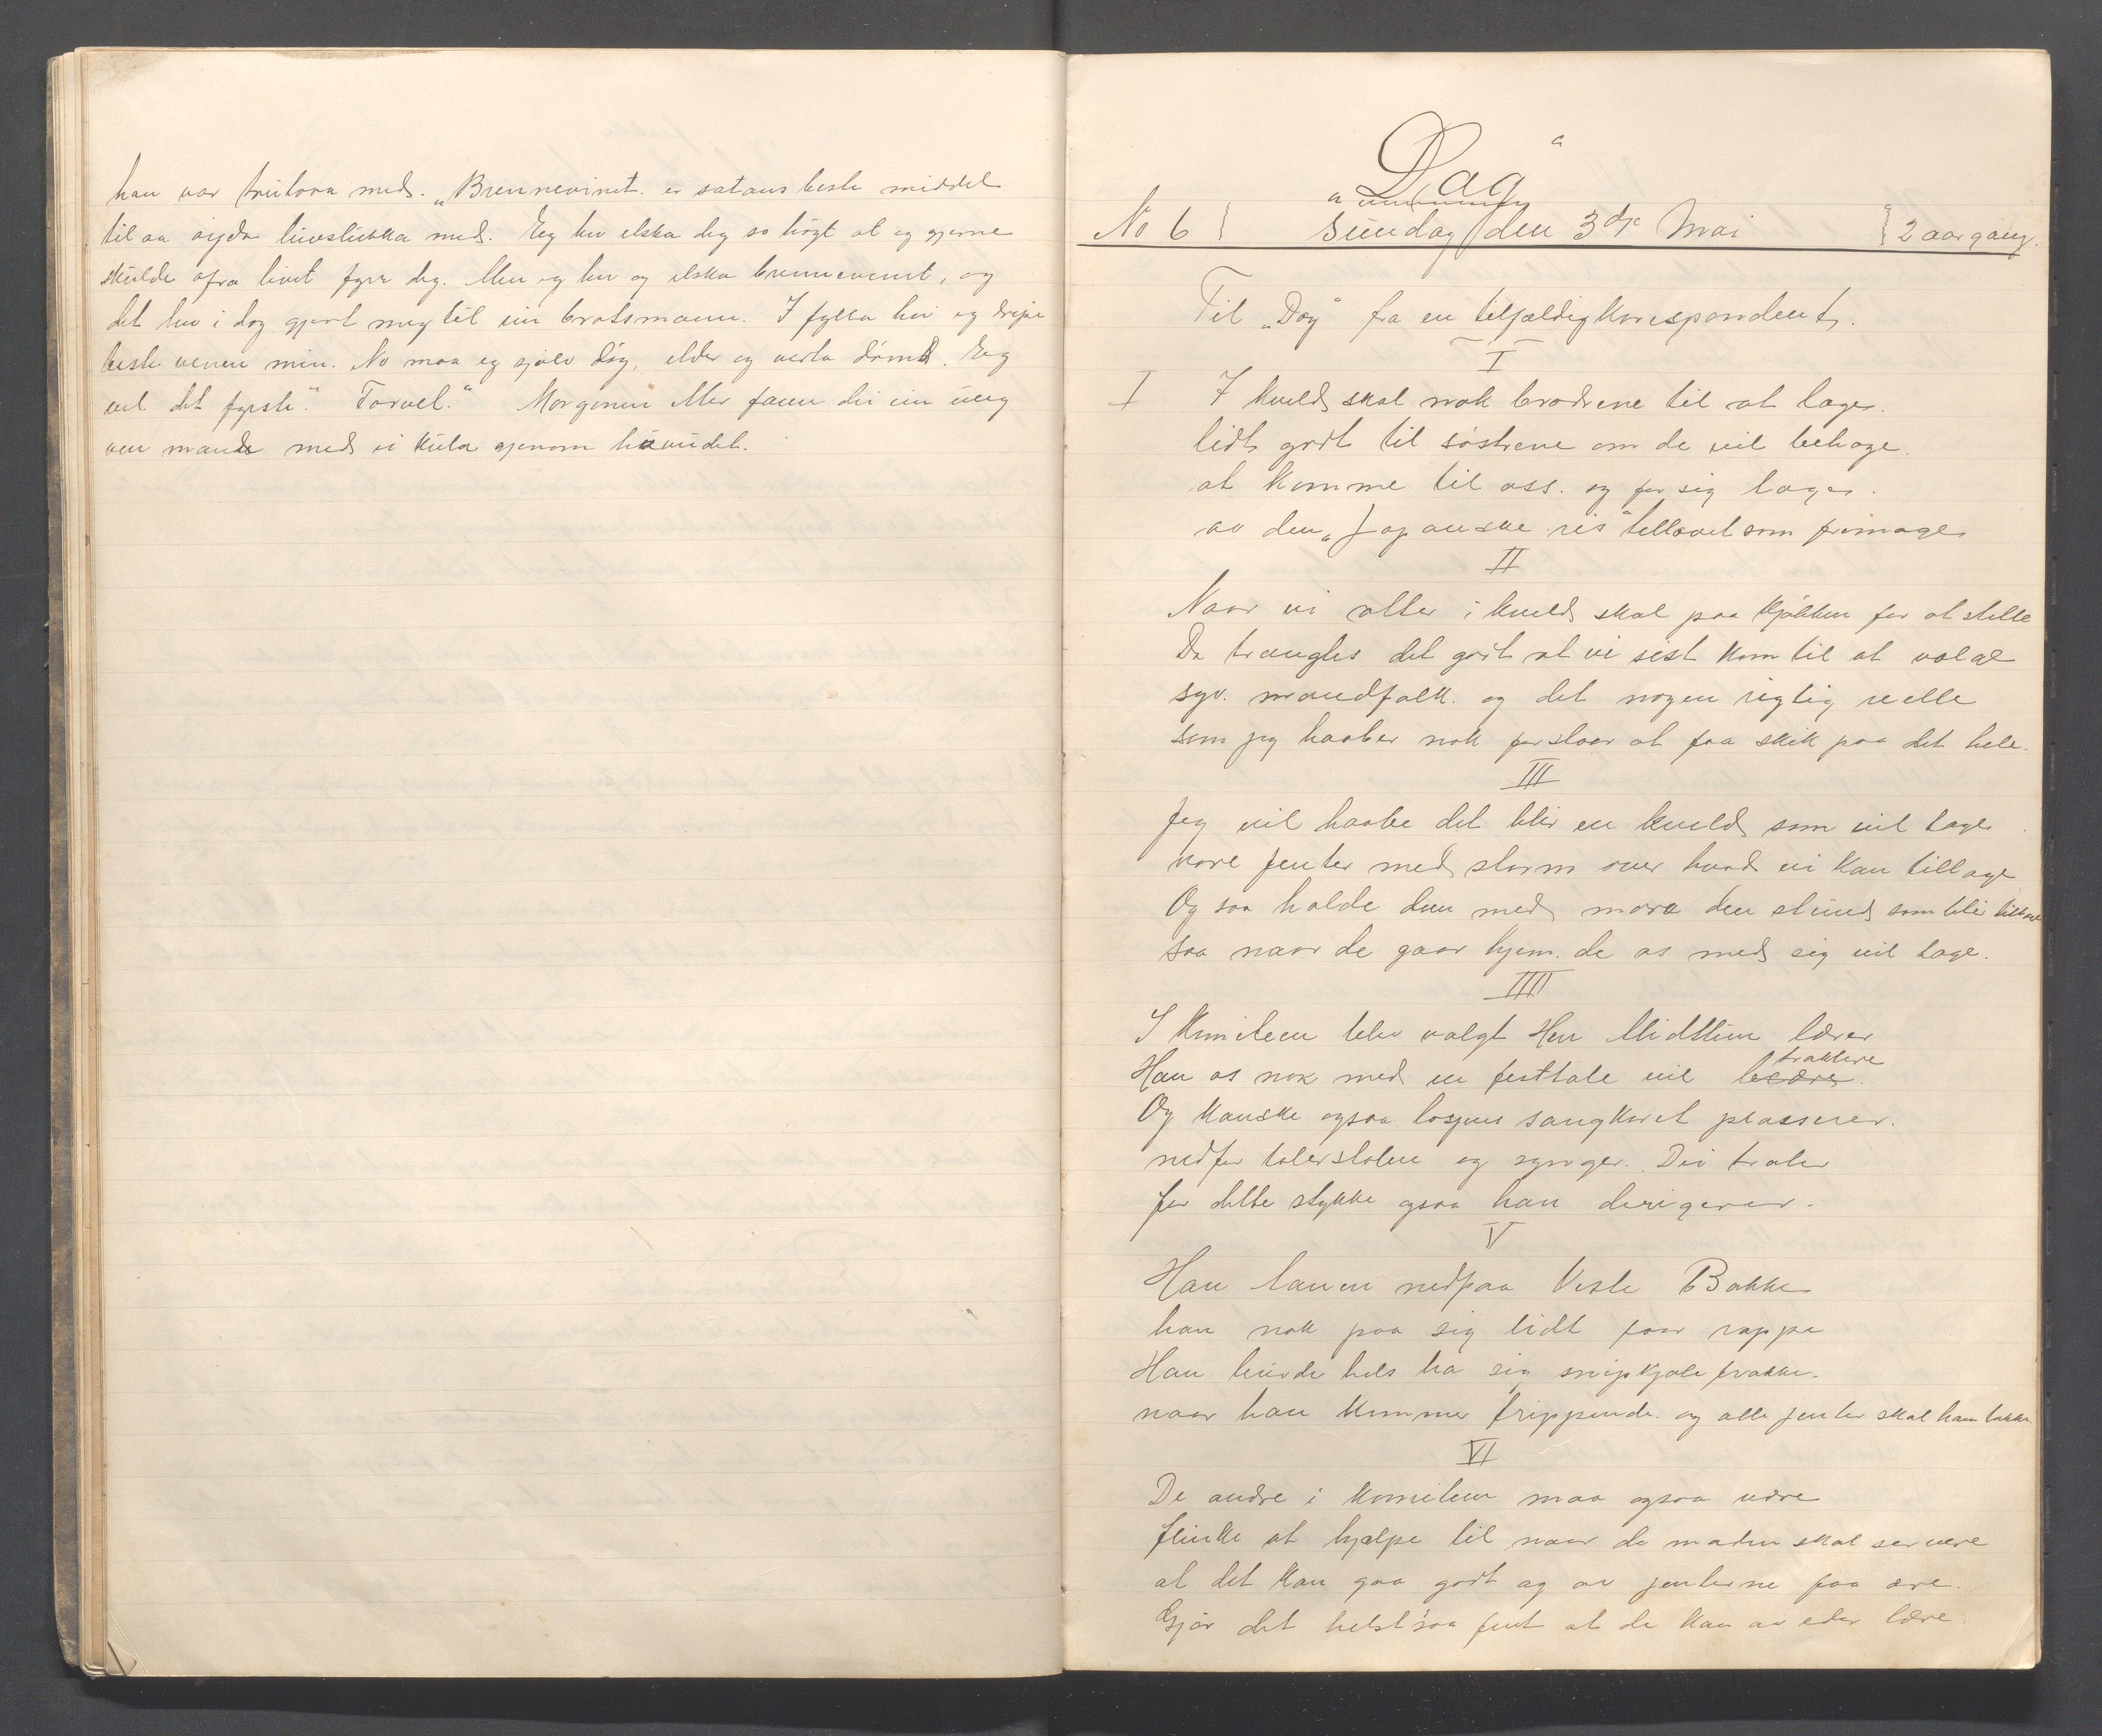 han var trulova med. „Brennevinet. er satans beste middel
til aa øyda livslukka med. Eg hev elska deg so høgt at eg gjerne
skulde ofra livet fyre deg. Men eg hev og elska brennevinet, og
det hev i dag gjort meg til ein brotsmann. I fylla hev eg drepe
beste venen min. No maa eg sjølv døy, elder og verta dømd. Eg
vel det fyrste." Farvel." Morgonen etter fann dei ein ung
ven mand med ei kula gjenom hovudet.
„Dag"
No 6 } Sundag den 3dje Mai { 2 aargang.
Til „Dag" fra en tilfældig korespondent.
I
I I kveld skal nok brødrene til at lage.
lidt godt til søstrene om de vil behage.
at komme til oss. og for sig tage.
av den „Japanske ris" tillavet som fromage
II
Naar vi atter i kveld skal paa kjøkken for at stelle
Da trængtes det godt at vi sist kom til at vælge
syv. mandfolk. og det nogen rigtig reelle
som jeg haaber nok forstaar at faa skik paa det hele.
III
Jeg vil haabe det blir en kveld som vil tage
vore jenter med storm over hvad vi kan tillage
Og saa holde dem med moro den stund som blir tilbake
saa naar de gaar hjem. de os med sig vil tage.
IIII
I Komiteen blev valgt Herr Midttun lærer
Han os nok med en festtale vil beære traktere.
Og kanske ogsaa losjens sangkoret plasserer.
nedfor talerstolen og synger. Dei traler
for dette stykke ogsaa han dirigerer.
V
Han nedpaa Vesle Bakke
han nok paa sig lidt faar rappe
Han burde hels ha sig snipkjole frakke.
naar han kommer trippende. og alle jenter skal ham takke.
VI
De andre i komiteen maa ogsaa være
flinke at hjælpe til naar de maten skal servere
at det kan gaa godt og av jenterne faa ære.
Gjør det helst saa fint at de kan av eder lære